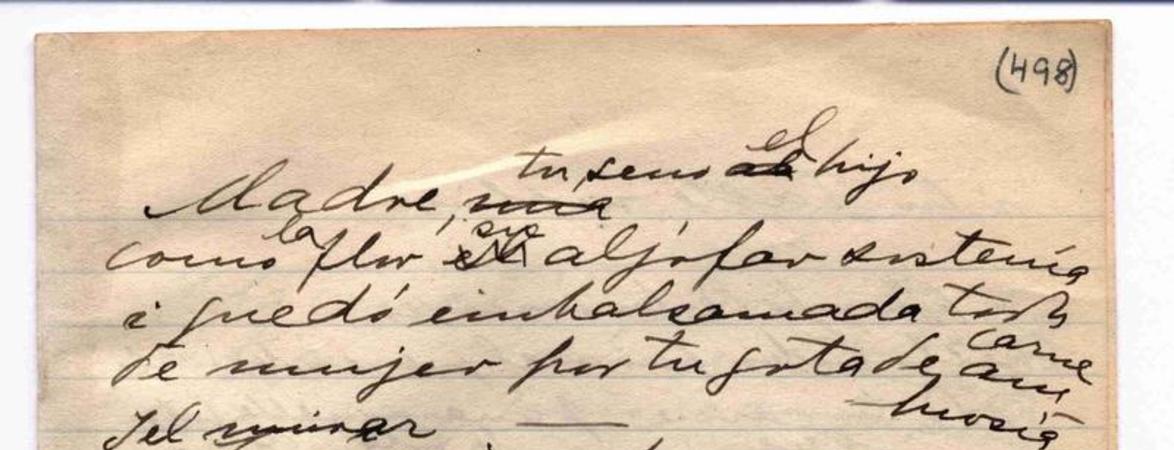 (498)
tu seno el hijo
Madre, una
como la flor su aljófar sostenía
i quedó embalsamada toda
carne
de mujer por tu gota de am
brosía
I el mirar